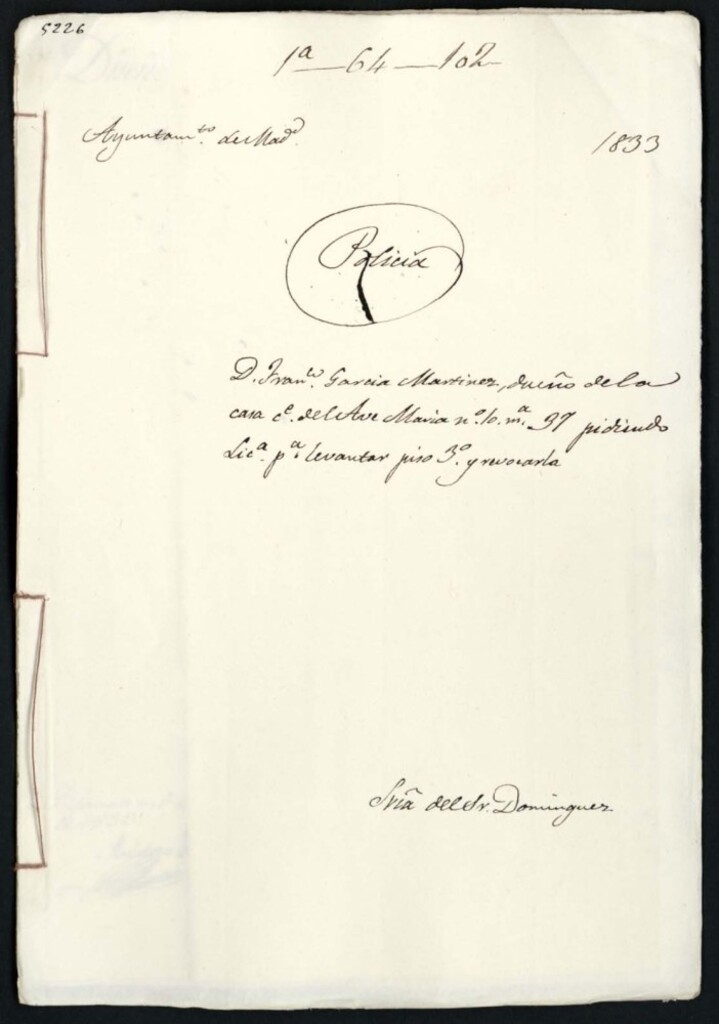 5226
1ª — 64 — 102
Ayuntam.to de Mad.d
1833
Policia
D. Fran.co Garcia Martinez, dueño de la
casa c.e del Ave Maria nº. 10. m.ª 37 pidiendo
Lic.ª p.ª levantar piso 3º. y revocarla
Sría del Sr. Dominguez